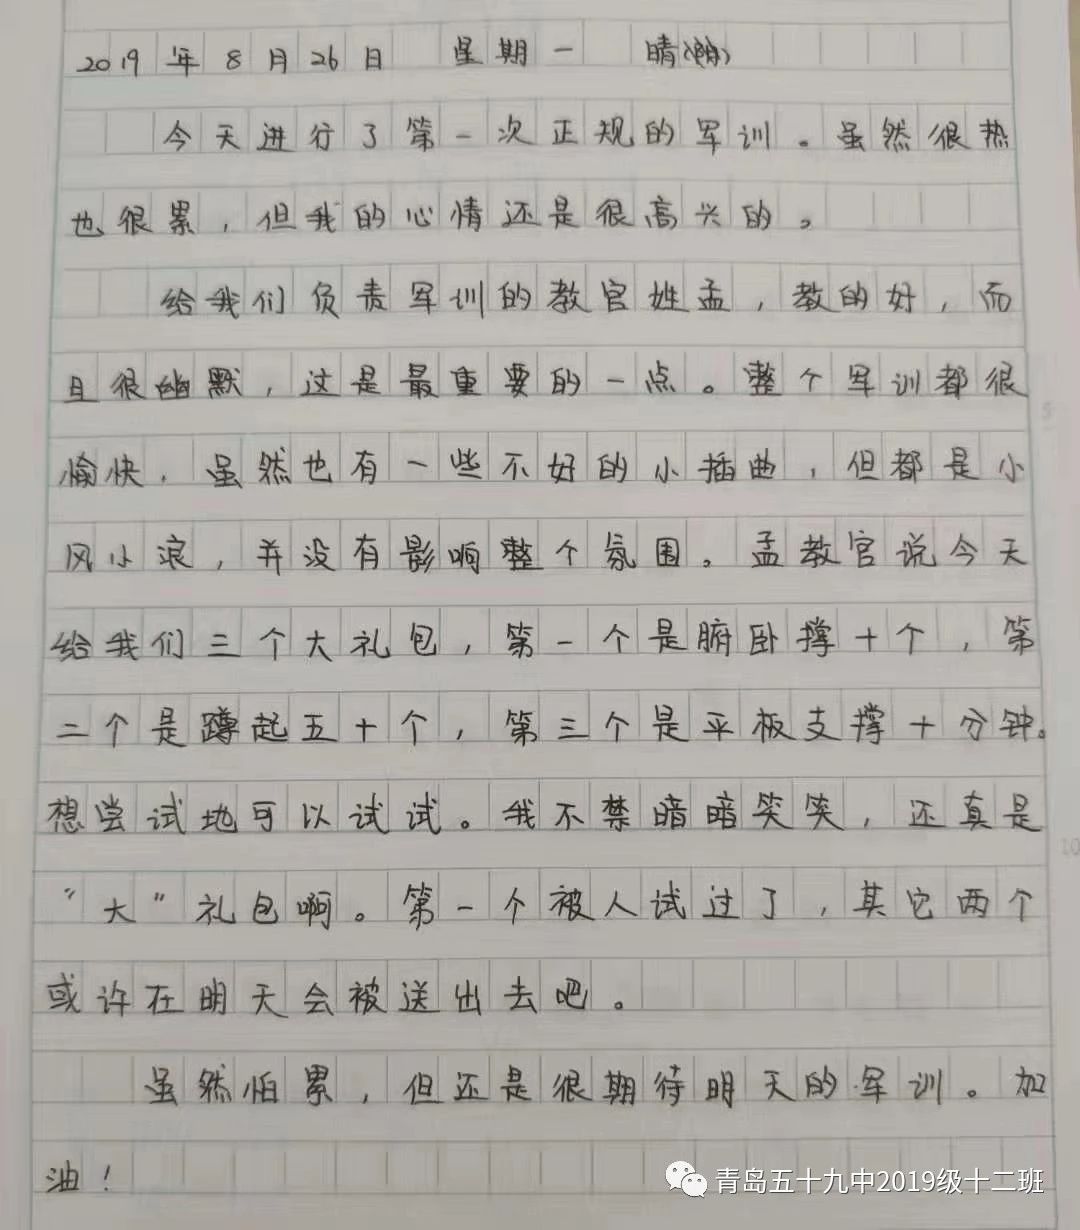 2019年8月26日 星期一 晴
今天进行了第一次正规的军训。虽然很热
也很累,但我的心情还是很高兴的。
给我们负责军训的教官姓孟,教的好,而
且很幽默,这是最重要的一点。整个军训都很
愉快,虽然也有一些不好的小插曲,但都是小
风小浪,并没有影响整个氛围。孟教官说今天
给我们三个大礼包,第一个是腑卧撑十个,第
二个是蹲起五十个,第三个是平板支撑十分钟。
想尝试地可以试试。我不禁暗暗笑笑,还真是
“大”礼包啊。第一个被人试过了,其它两个
或许在明天会被送出去吧。
虽然怕累,但还是很期待明天的军训。加
油!
青岛五十九中2019级十二班